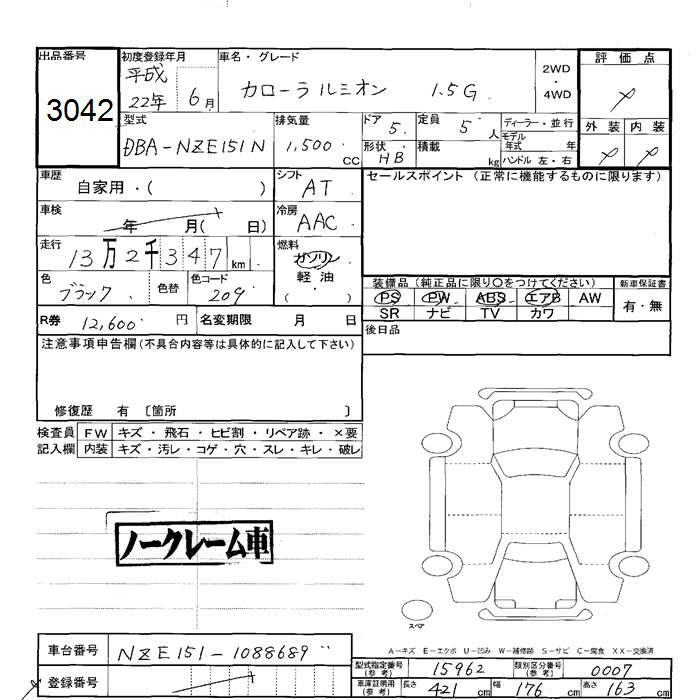 出品番号 初度登録年月 車名・グレード 2WD 評価点
3042 平成22年 6月 カローラルミオン 1.5G 4WD
型式 排気量 ドア 5. 定員 5人 ディーラー・並行 外装 内装
DBA-NZE151N 1,500 cc 形状 HB 積載 kg モデル年式 年 ハンドル 左・右
車歴 シフト セールスポイント (正常に機能するものに限ります)
自家用・( ) AT
車検 年 月( 日) 冷房 AAC
走行 13万2千347km 燃料 ガソリン
軽油
( ・ )
色 ブラック 色替 色コード 209
装備品(純正品に限り○をつけてください) 新車保証書
PS PW ABS エアB AW 有・無
SR ナビ TV カワ
R券 12,600 円 名変期限 月 日 後日品
注意事項申告欄(不具合内容等は具体的に記入して下さい)
修復歴 有 〔箇所 〕
検査員 FW キズ・飛石・ヒビ割・リペア跡・×要
記入欄 内装 キズ・汚レ・コゲ・穴・スレ・キレ・破レ
ノークレーム車
スペア
A-キズ E-エクボ U-凹み W-補修跡 S-サビ C-腐食 XX-交換済
車台番号 NZE151-1088689
型式指定番号(参考) 15962 類別区分番号(参考) 0007
登録番号
車庫証明用(参考) 長さ 421cm 幅 176cm 高さ 163cm